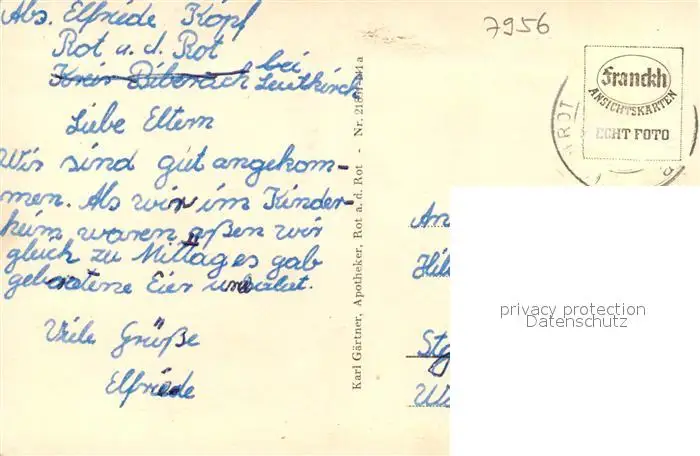 Abs. Elfriede Kopf
Rot a. d. Rot
Kreis Biberach bei
Leutkirch
Liebe Eltern
Wir sind gut angekom-
men. Als wir im Kinder-
heim waren aßen wir
gleich zu Mittag es gab
gebratene Eier und
Viele Grüße
Elfriede
Karl Gärtner, Apotheker, Rot a. d. Rot - Nr.
7956
Franckh
ANSICHTSKARTEN
ECHT FOTO
ROT
An
Stg
privacy protection
Datenschutz